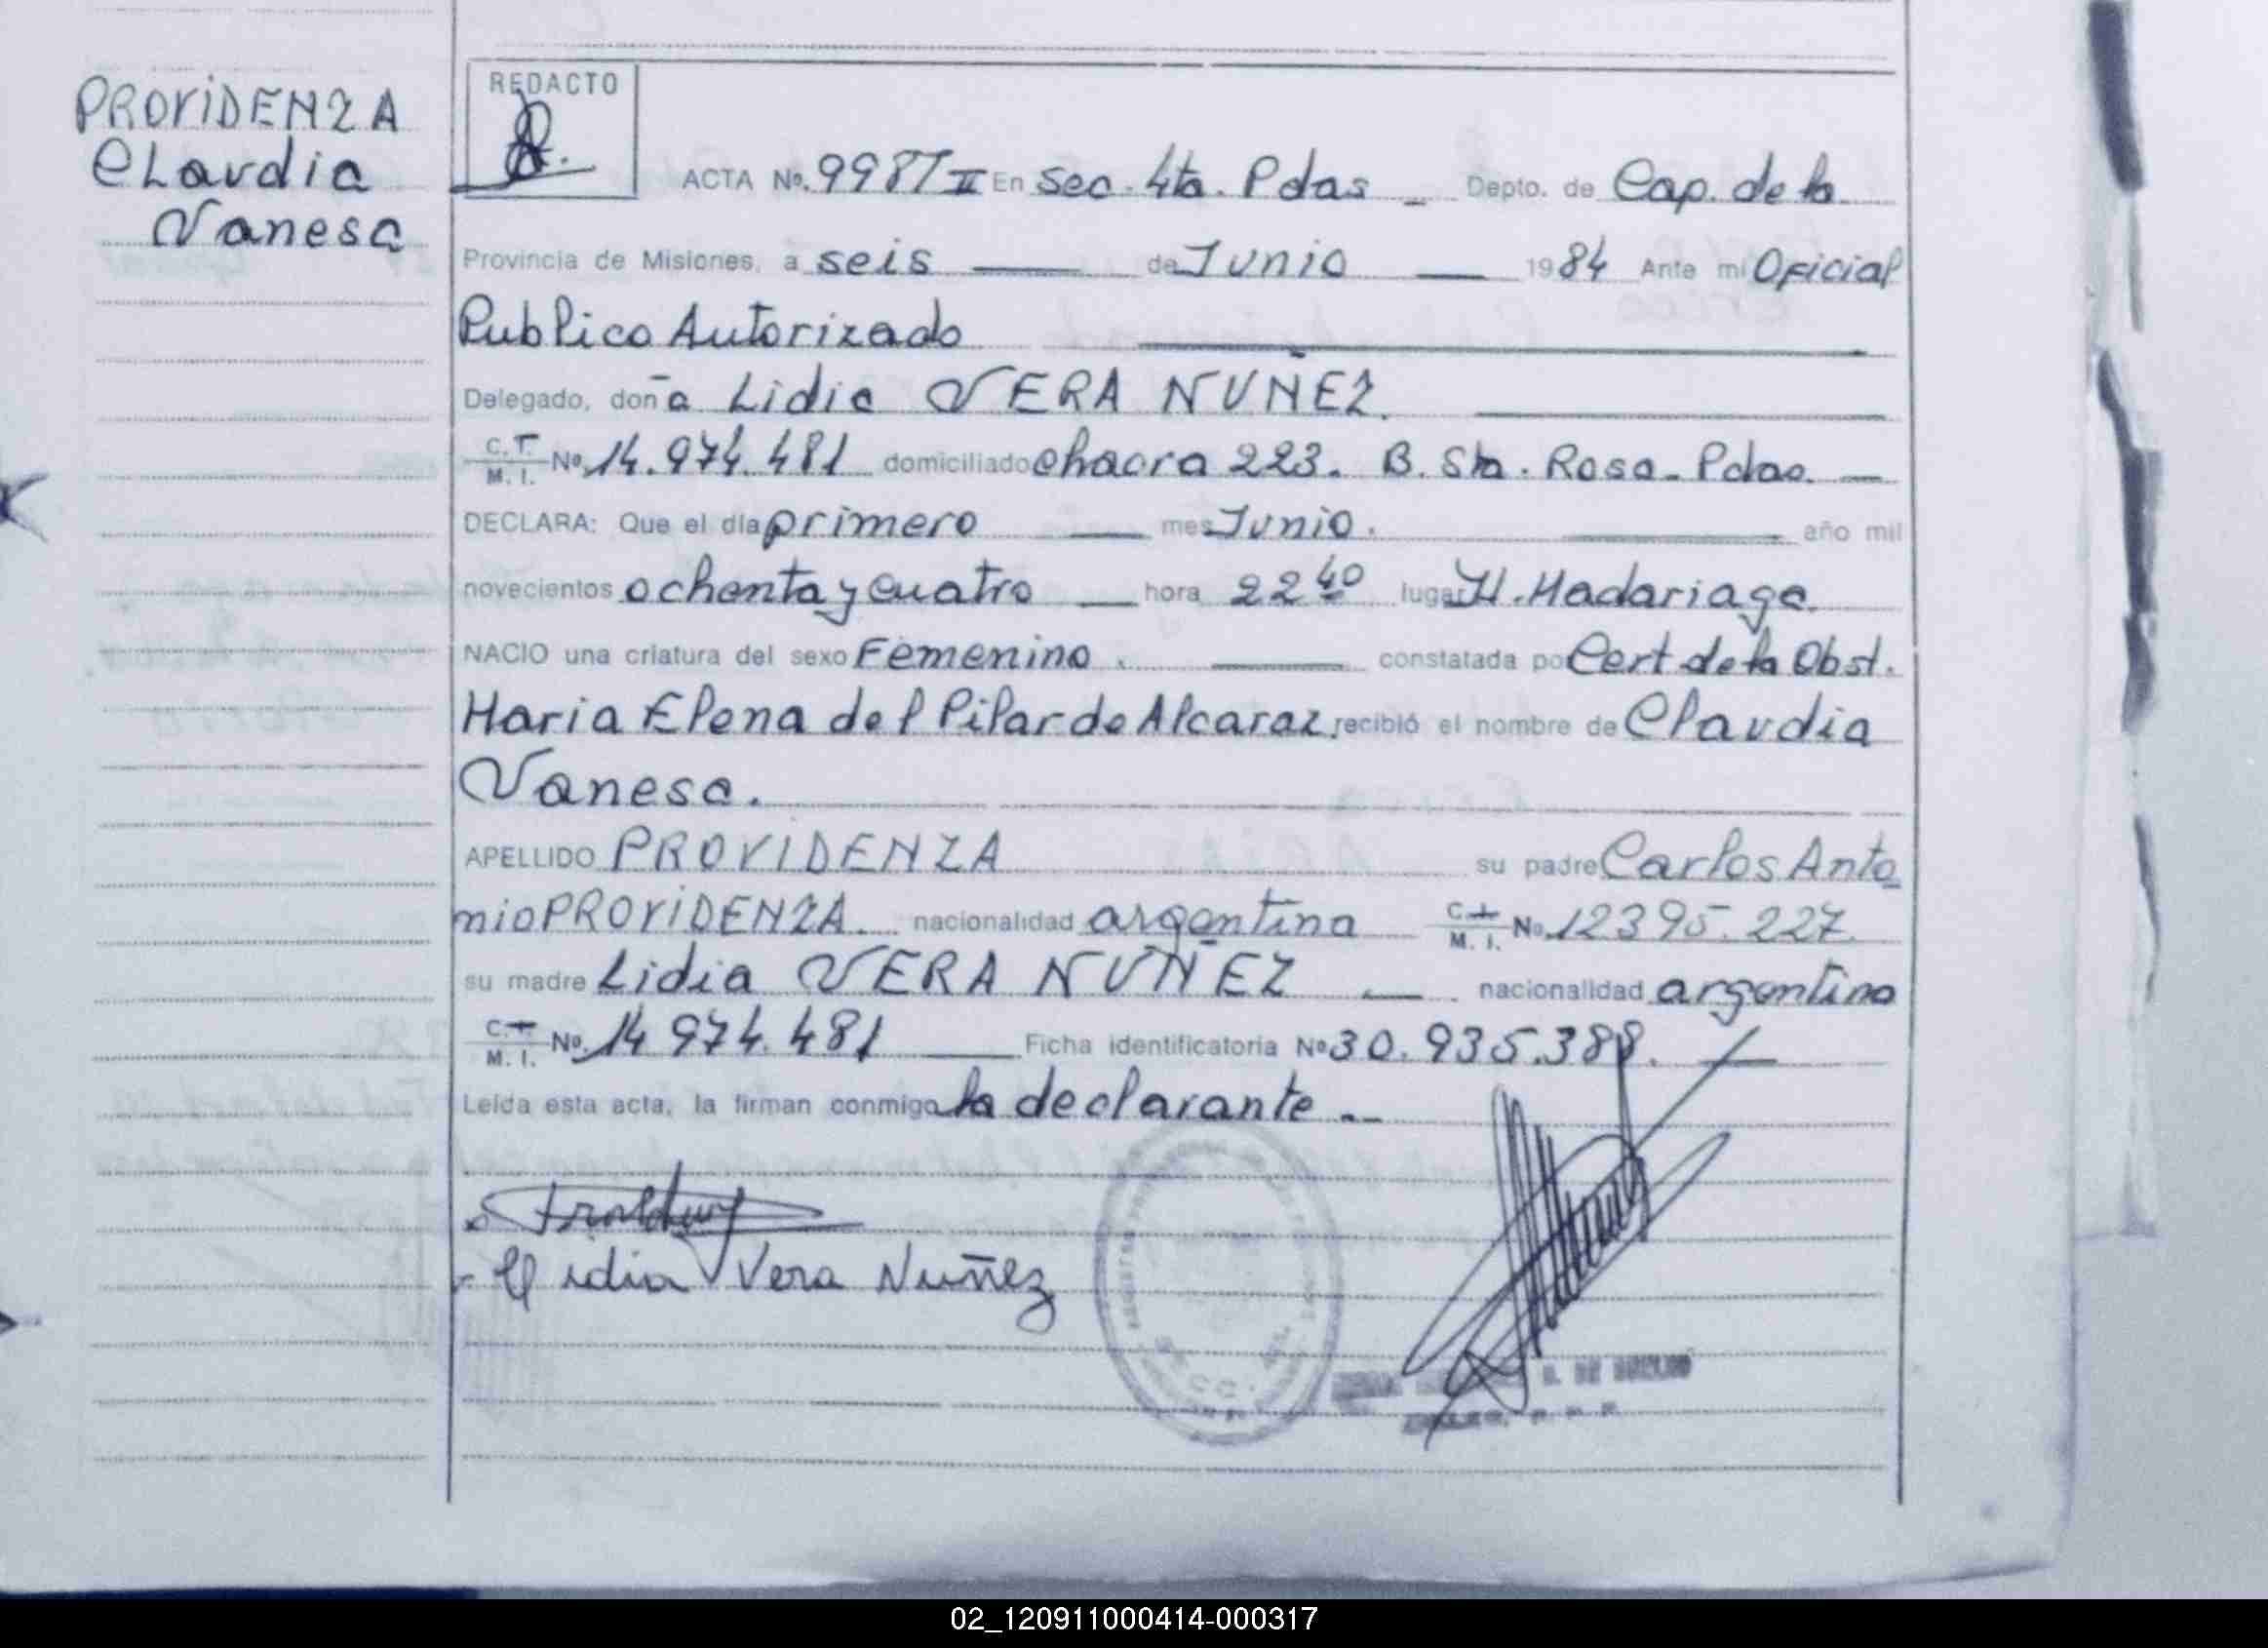 PROViDENZA
CLaudia
Vanesa
REDACTO
ACTA Nº. 998 T II En Sec. 4ta. Pdas _ Depto. de Cap. de la
Provincia de Misiones, a seis de Junio 1984 Ante mi Oficial
Publico Autorizado
Delegado, doña Lidia VERA NUÑEZ.
C. T. M. I. Nº 14.974.481 domiciliado chacra 223. B. Sta. Rosa - Pdas.
DECLARA: Que el día primero mes Junio. año mil
novecientos ochenta y cuatro hora 22 40 lugar H. Madariaga
NACIO una criatura del sexo Femenino. constatada por Cert de la Obst.
Maria Elena del Pilar de Alcaraz, recibió el nombre de Claudia
Vanesa.
APELLIDO PROVIDENZA su padre Carlos Anto
nio PROViDENZA. nacionalidad argentina C. I. M. I. No. 12395.227.
su madre Lidia VERA NUÑEZ nacionalidad argentina
C. I. M. I. Nº. 14 974.481 Ficha identificatoria Nº 30.935.388.
Leída esta acta, la firman conmigo la declarante.
Lidia Vera Nuñez
02_120911000414-000317